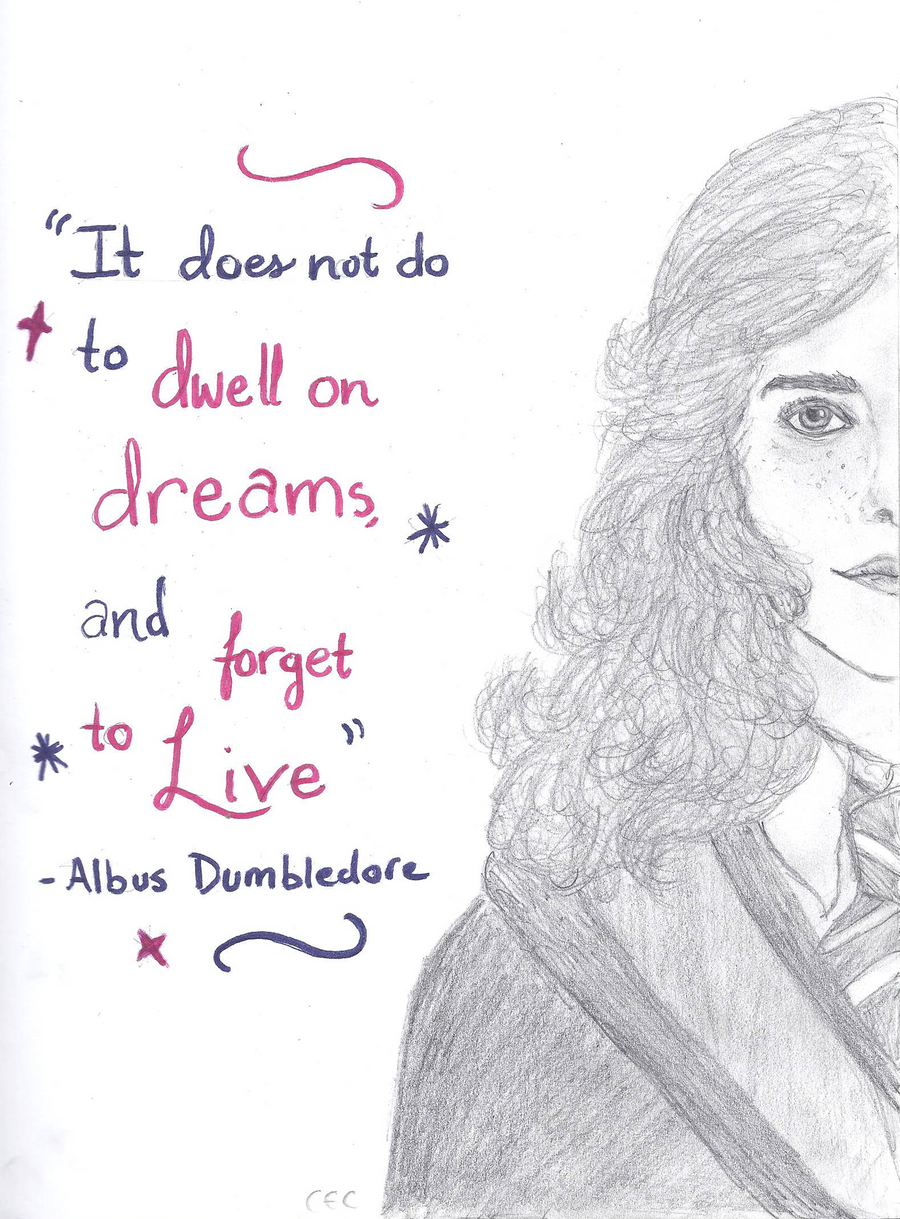 “It does not do
to dwell on
dreams,
and forget
to Live”
-Albus Dumbledore
CEC